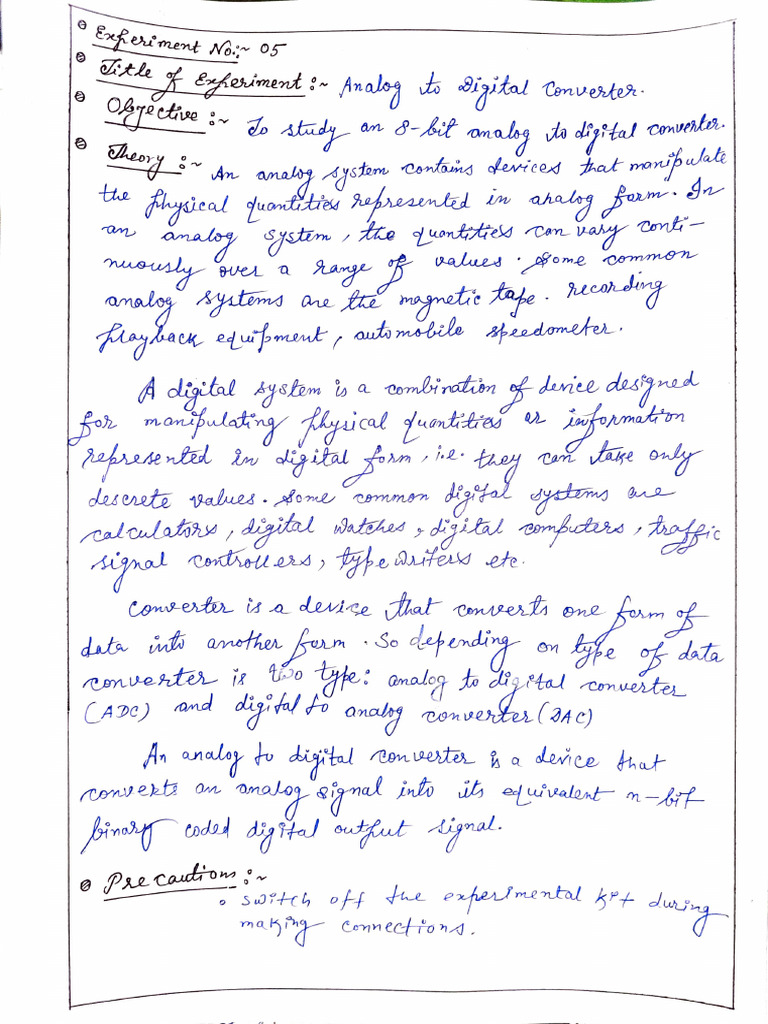 Experiment No:~ 05
Title of Experiment :~ Analog to Digital Converter.
Objective :~ To study an 8-bit analog to digital converter.
Theory :~ An analog system contains devices that manipulate
the physical quantities represented in analog form. In
an analog system, the quantities can vary conti-
nuously over a range of values. Some common
analog systems are the magnetic tape. recording
playback equipment, automobile speedometer.
A digital system is a combination of device designed
for manipulating physical quantities or information
represented in digital form, i.e. they can take only
descrete values. Some common digital systems are
calculators, digital watches, digital computers, traffic
signal controllers, typewriters etc.
Converter is a device that converts one form of
data into another form. So depending on type of data
converter is two type: analog to digital converter
(ADC) and digital to analog converter (DAC)
An analog to digital converter is a device that
converts an analog signal into its equivalent n-bit
binary coded digital output signal.
Precautions :~
• switch off the experimental kit during
making connections.